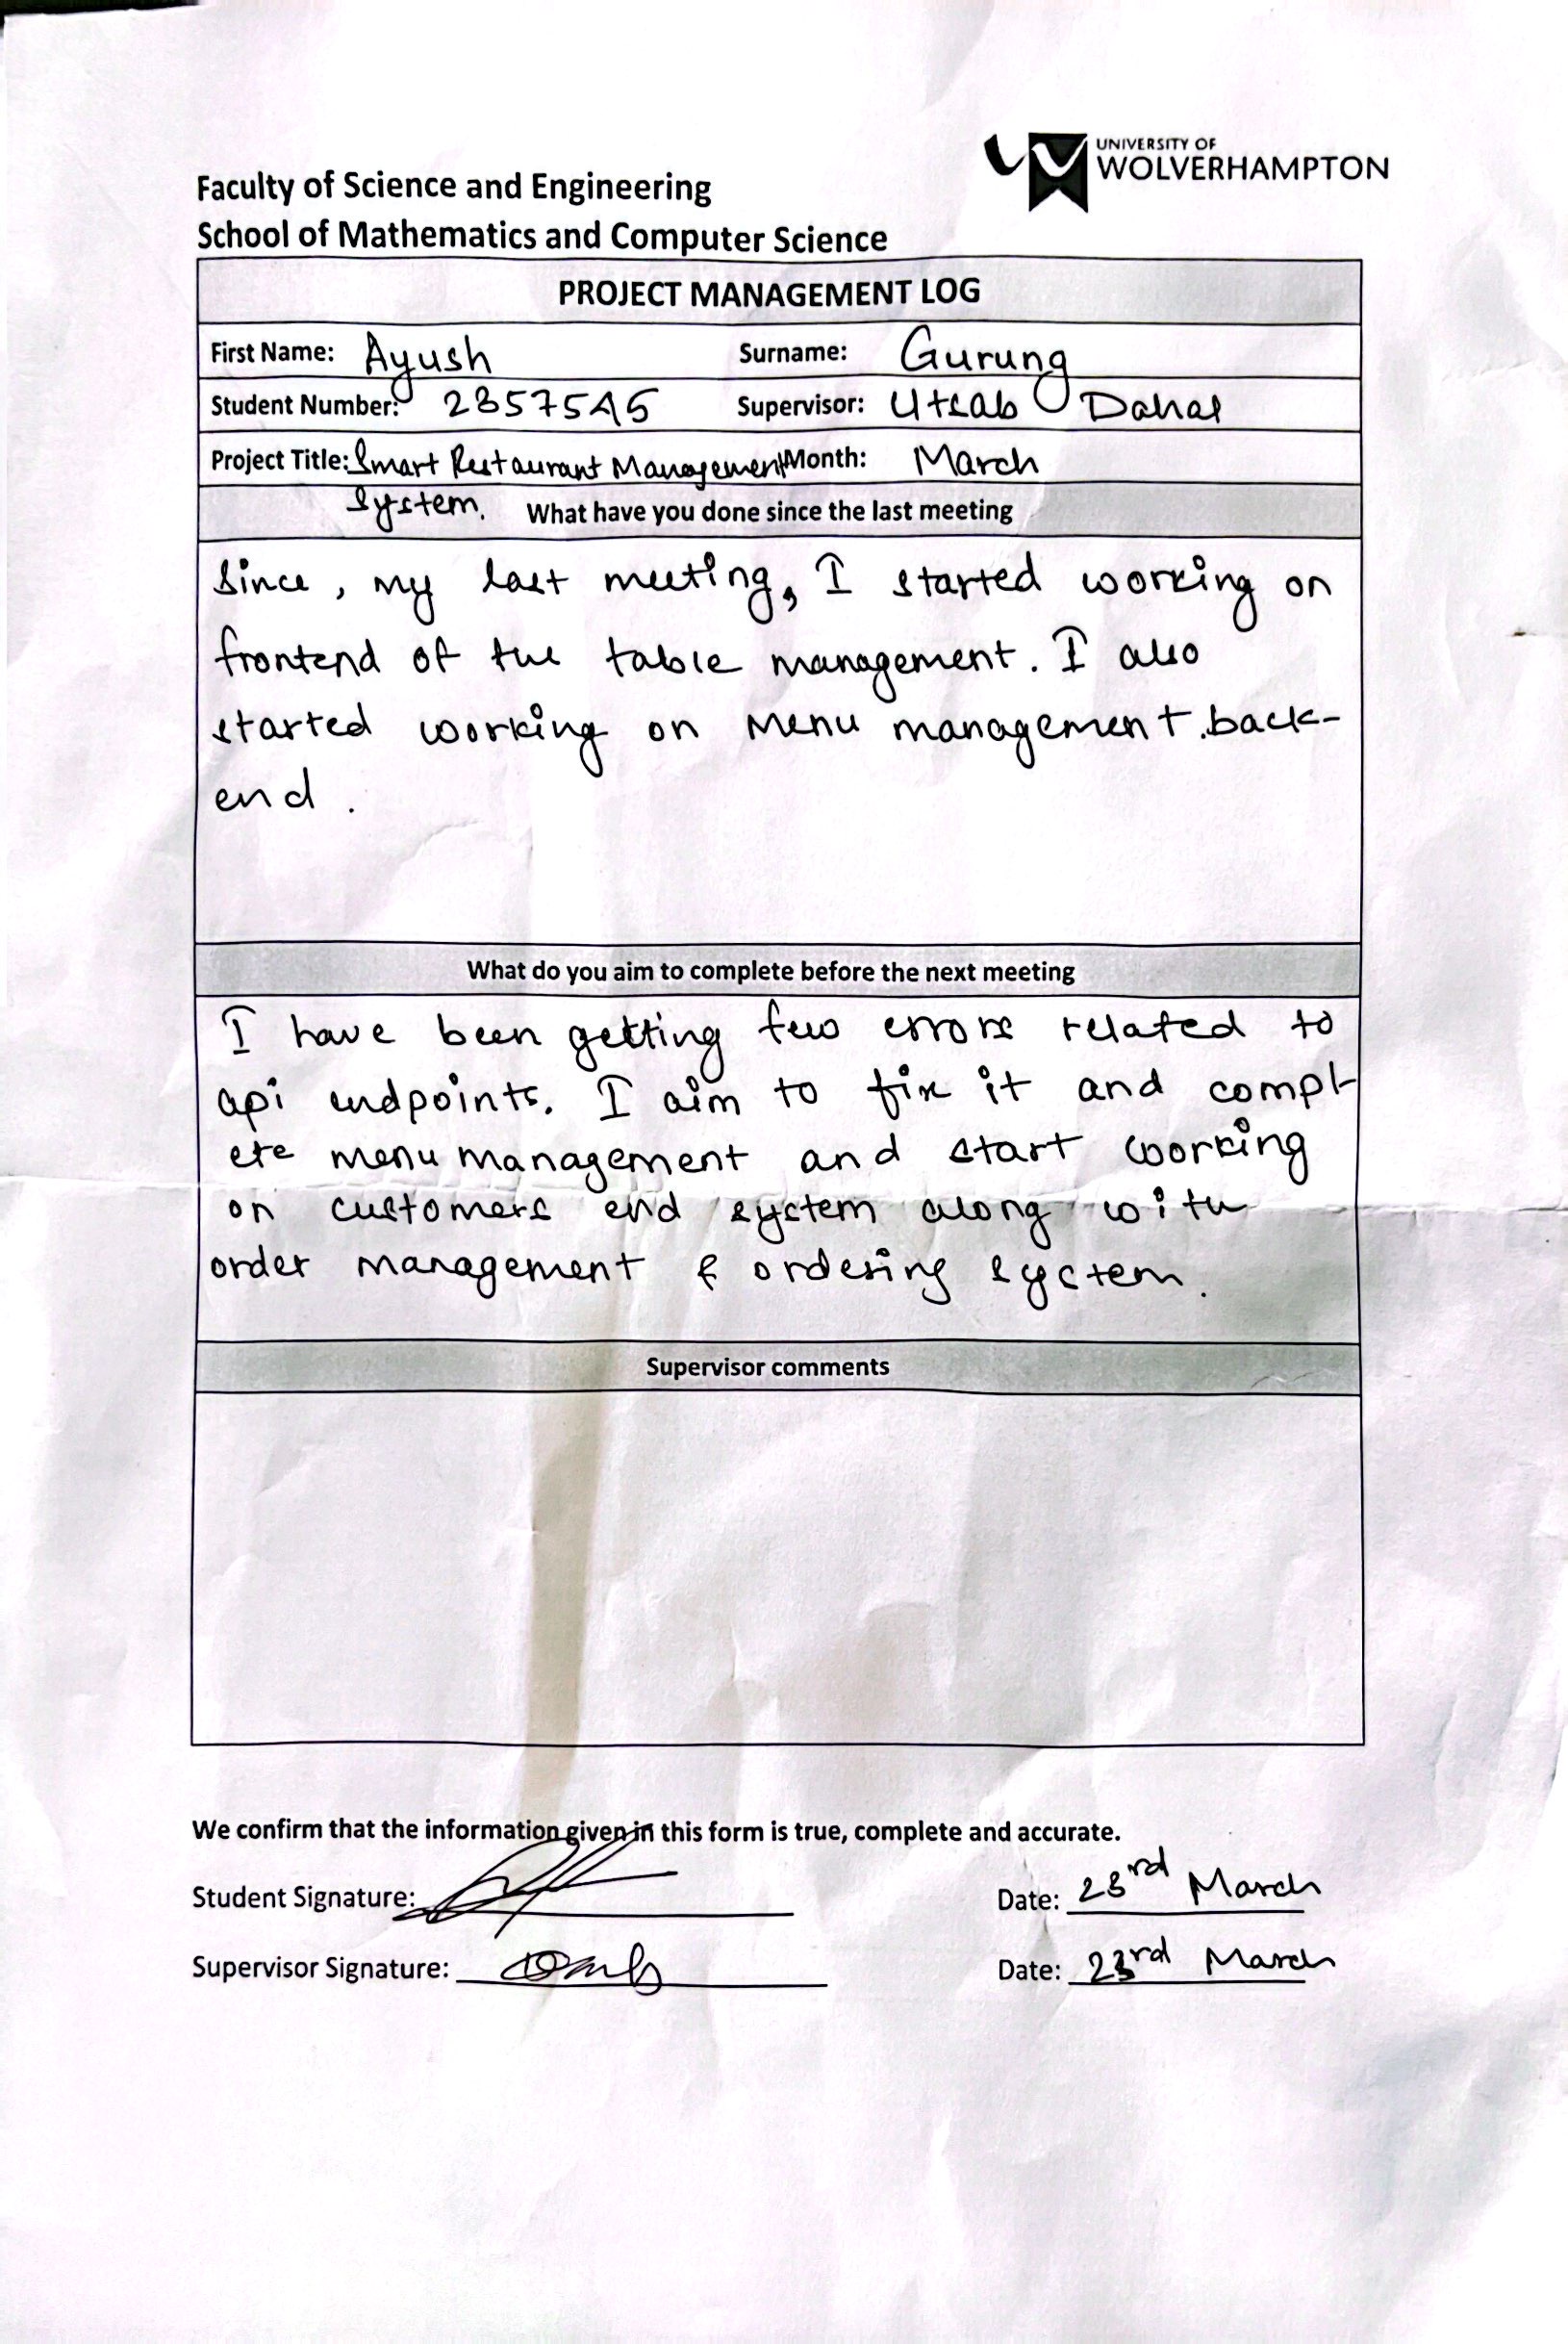 UNIVERSITY OF
WOLVERHAMPTON
Faculty of Science and Engineering
School of Mathematics and Computer Science
PROJECT MANAGEMENT LOG
First Name: Ayush Surname: Gurung
Student Number: 2357545 Supervisor: Utsab Dahal
Project Title: Smart Restaurant Management Month: March
System. What have you done since the last meeting
Since, my last meeting, I started working on
frontend of the table management. I also
started working on Menu management back-
end.
What do you aim to complete before the next meeting
I have been getting few errors related to
api endpoints. I aim to fix it and compl-
ete menu management and start working
on customers end system along with
order management & ordering system.
Supervisor comments
We confirm that the information given in this form is true, complete and accurate.
Student Signature: Date: 23rd March
Supervisor Signature: Date: 23rd March